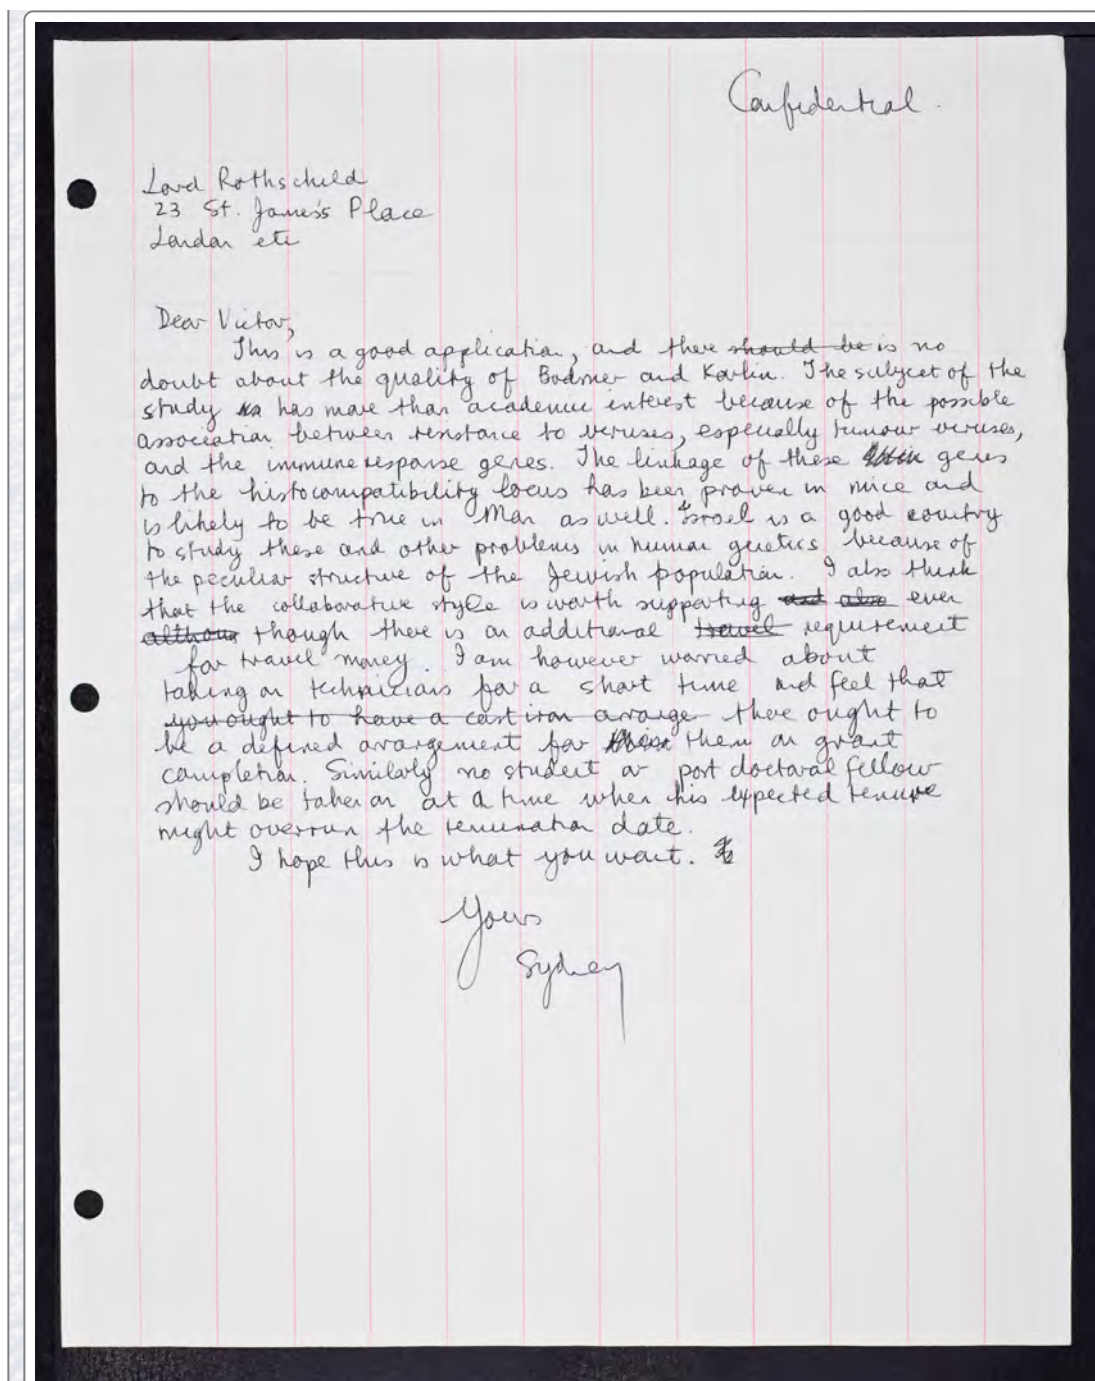 Confidential.
Lord Rothschild
23 St. James's Place
London etc
Dear Victor,
This is a good application, and there should be is no
doubt about the quality of Bodmer and Karlin. The subject of the
study has more than academic interest because of the possible
association between resistance to viruses, especially tumour viruses,
and the immune response genes. The linkage of these genes
to the histocompatibility locus has been proven in mice and
is likely to be true in Man as well. Israel is a good country
to study these and other problems in human genetics because of
the peculiar structure of the Jewish population. I also think
that the collaborative style is worth supporting and also even
althoug though there is an additional travel requirement
for travel money. I am however worried about
taking on technicians for a short time and feel that
you ought to have a cast iron arrange there ought to
be a defined arrangement for them on grant
completion. Similarly no student or post doctoral fellow
should be taken on at a time when his expected tenure
might overrun the termination date.
I hope this is what you want.
Yours
Sydney